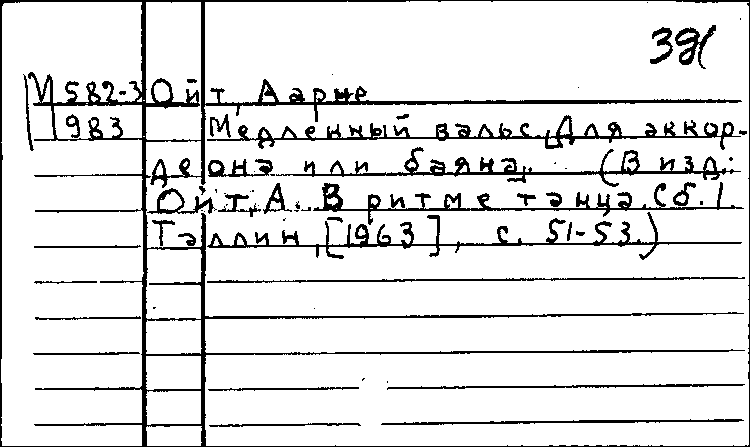 39(
М 582-3 Ойт, Аарне
1983 Медленный вальс. [Для аккор-
деона или баяна]. (В изд.:
Ойт, А. В ритме танца. Сб. 1.
Таллин, [1963], с. 51-53.)